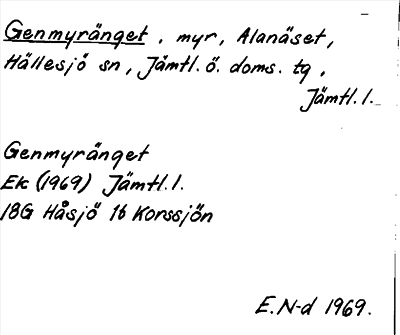 Genmyränget, myr, Alanäset,
Hällesjö sn, Jämtl. ö. doms. tg,
Jämtl. l.
Genmyränget
Ek (1969) Jämtl. l.
18G Håsjö 1b Korssjön
E. N-d 1969.